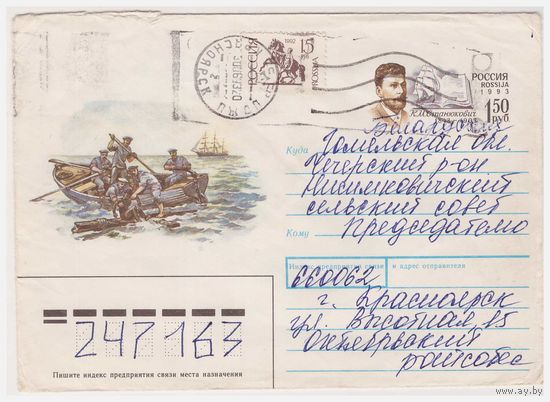 КРАСНОЯРСК
1992
15
РОССИЯ
ROSSIJA
РОССИЯ
ROSSIJA
1993
1.50
РУБ.
К.М.Станюкович
1843-1903
Куда
Гомельская обл.
Чечерский р-он
сельский совет
Кому
Председателю
Индекс предприятия связи и адрес отправителя
660062
г. Красноярск
ул. Высотная, 15
Октябрьский
райсовет
247163
Пишите индекс предприятия связи места назначения
www.ay.by